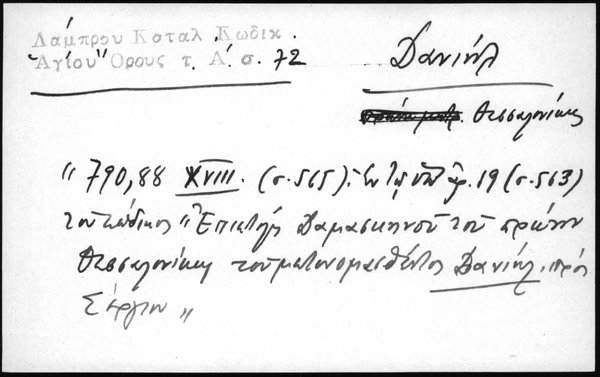 Λάμπρου Καταλ. Κωδικ.
Ἁγίου Ὄρους τ. Α΄. σ. 72
Δανιήλ
Θεσσαλονίκης
" 790,88 XVIII. (σ. 565). Ἐν τῷ ὑπ' ἀρ. 19 (σ. 563)
τοῦ κώδικος "Ἐπιστολή Δαμασκηνοῦ τοῦ πρώην
Θεσσαλονίκης τοῦ μετονομασθέντος Δανιήλ, πρός
Σέργιον "